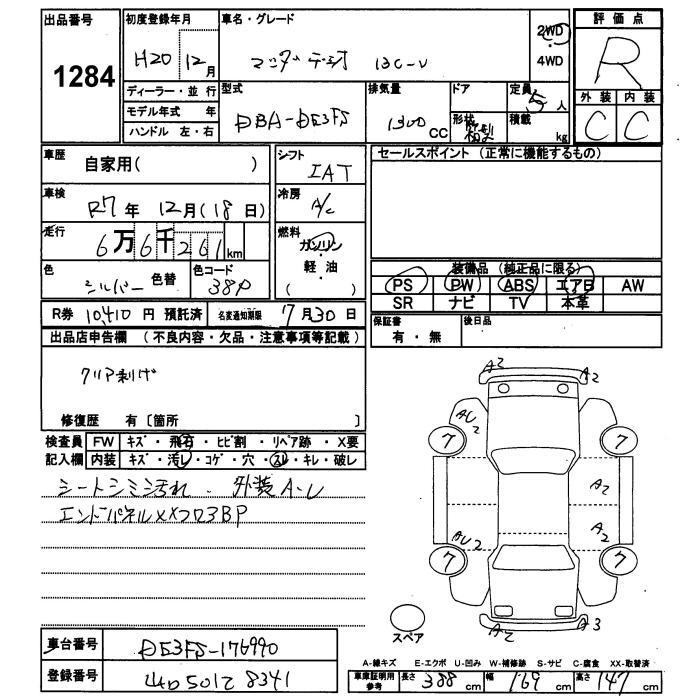 出品番号
1284
初度登録年月
H20 12月
車名・グレード
マツダ デミオ 13C-V
2WD
4WD
評価点
R
外装 内装
C C
ディーラー・並行
モデル年式 年
ハンドル 左・右
型式
DBA-DE3FS
排気量
1300 CC
ドア
形状
定員 5人
積載 kg
車歴
自家用( )
シフト
IAT
セールスポイント (正常に機能するもの)
車検
R7年 12月(18日)
冷房
A/C
走行
6万6千261km
燃料
ガソリン
軽・油
( )
色
シルバー 色替
色コード
38P
装備品 (純正品に限る)
PS PW ABS エアB AW
SR ナビ TV 本革
R券 10,410 円 預託済 名変通知期限 7月30日
保証書
有・無
後日品
出品店申告欄 (不良内容・欠品・注意事項等記載)
クリア剥げ
修復歴 有〔箇所 〕
検査員 FW キズ・飛石・ヒビ割・リペア跡・X要
記入欄 内装 キズ・汚レ・コゲ・穴・スレ・キレ・破レ
シートシミ汚れ . 外装A-U
エンドパネルXXフロ3BP
A2 A2
AU2
7 7
A2
A2
AU2
7 7
A2 A3
スペア
車台番号
DE3FS-176990
登録番号
501 8341
A-線キズ E-エクボ U-凹み W-補修跡 S-サビ C-腐食 XX-取替済
車庫証明用
参考
長さ 388 cm 幅 169 cm 高さ 147 cm